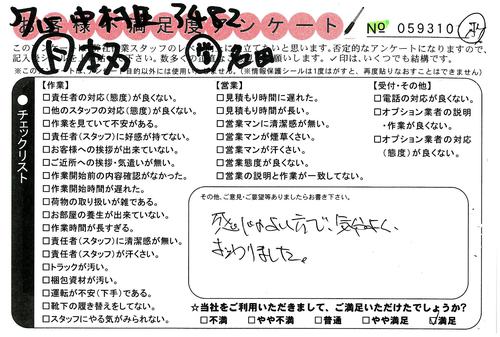 3452
お客様満足度アンケート
No 059310
このアンケートはお客様の声を弊社作業スタッフのレベル向上に役立てたいと思います。否定的なアンケートになりますので、
※このアンケートは、アンケート目的以外には使用いたしません。(※情報保護シールは1度はがすと、再度貼りなおすことはできません)
ト 本乃
営 和田
●チェックリスト
【作業】
□責任者の対応(態度)が良くない。
□他のスタッフの対応(態度)が良くない。
□作業を見ていて不安がある。
□責任者(スタッフ)に好感が持てない。
□お客様への挨拶が出来ていない。
□ご近所への挨拶・気遣いが無い。
□作業開始前の内容確認がなかった。
□作業開始時間が遅れた。
□荷物の取り扱いが雑である。
□お部屋の養生が出来ていない。
□作業時間が長すぎる。
□責任者(スタッフ)に清潔感が無い。
□責任者(スタッフ)が汗くさい。
□トラックが汚い。
□梱包資材が汚い。
□運転が不安(下手)である。
□靴下の履き替えをしてない。
□スタッフにやる気がみられない。
【営業】
□見積もり時間に遅れた。
□見積もり時間が長い。
□営業マンに清潔感が無い。
□営業マンが煙草くさい。
□営業マンが汗くさい。
□営業態度が良くない。
□営業の説明と作業が一致してない。
【受付・その他】
□電話の対応が良くない。
□オプション業者の説明
・作業が良くない。
□オプション業者の対応
(態度)が良くない。
その他、ご意見・ご要望等ありましたらお書き下さい。
感じのよい方で、気分よく、
おわりました。
☆当社をご利用いただきまして、ご満足いただけたでしょうか?
□不満 □やや不満 □普通 □やや満足 ☑満足